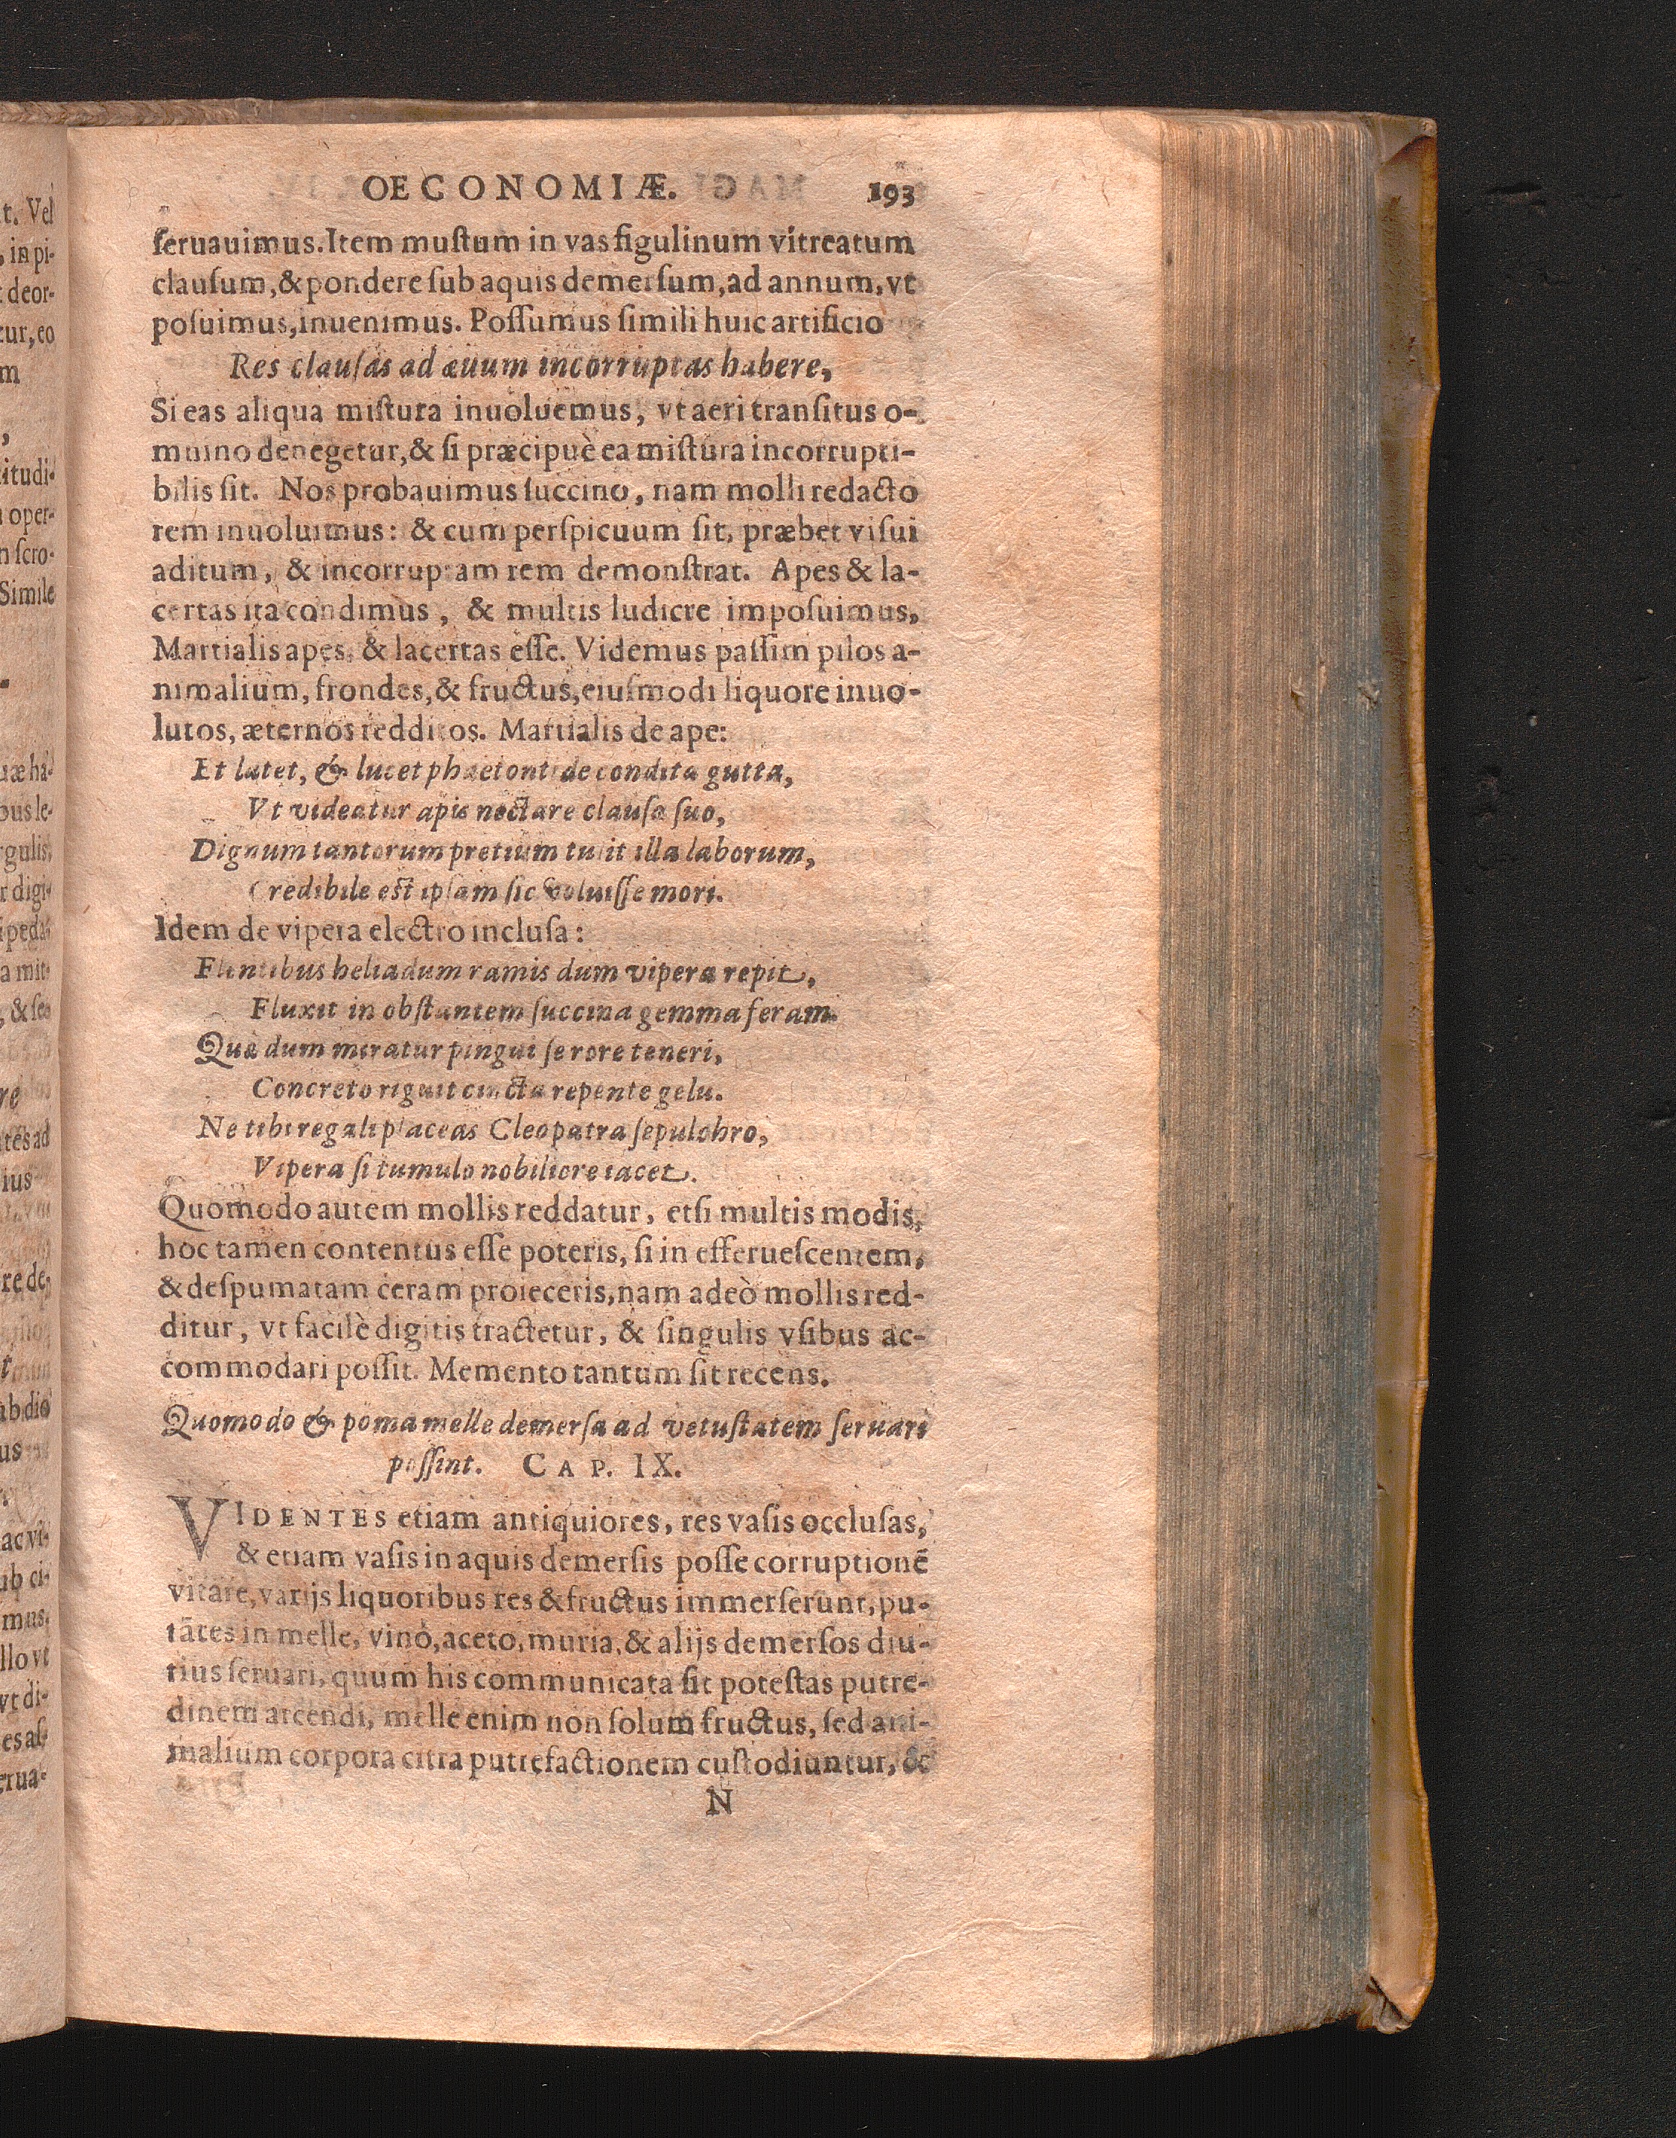 OECONOMIÆ. 193
ſeruauimus. Item muſtum in vas figulinum vitreatum
clauſum, & pondere ſub aquis demerſum, ad annum, vt
poſuimus, inuenimus. Poſſumus ſimili huic artificio
Res clauſas ad æuum incorruptas habere,
Si eas aliqua miſtura inuoluemus, vt aeri tranſitus o-
mnino denegetur, & ſi præcipuè ea miſtura incorrupti-
bilis ſit. Nos probauimus ſuccino, nam molli redacto
rem inuoluimus: & cum perſpicuum ſit, præbet viſui
aditum, & incorruptam rem demonſtrat. Apes & la-
certas ita condimus, & multis ludicre impoſuimus,
Martialis apes, & lacertas eſſe. Videmus paſſim pilos a-
nimalium, frondes, & fructus, eiuſmodi liquore inuo-
lutos, æternos redditos. Martialis de ape:
Et latet, & lucet phaetontide condita gutta,
Vt videatur apis nectare clauſa ſuo,
Dignum tantorum pretium tulit illa laborum,
Credibile eſt ipſam ſic voluiſſe mori.
Idem de vipera electro incluſa:
Flentibus heliadum ramis dum vipera repit,
Fluxit in obſtantem ſuccina gemma feram.
Quæ dum miratur pingui ſe rore teneri,
Concreto riguit cincta repente gelu.
Ne tibi regali placeas Cleopatra ſepulchro,
Vipera ſi tumulo nobiliore iacet.
Quomodo autem mollis reddatur, etſi multis modis,
hoc tamen contentus eſſe poteris, ſi in efferueſcentem,
& deſpumatam ceram proieceris, nam adeò mollis red-
ditur, vt facilè digitis tractetur, & ſingulis vſibus ac-
commodari poſſit. Memento tantum ſit recens.
Quomodo & poma melle demerſa ad vetuſtatem ſeruari
poſſint. CAP. IX.
VIDENTES etiam antiquiores, res vaſis occluſas,
& etiam vaſis in aquis demerſis poſſe corruptionē
vitare, varijs liquoribus res & fructus immerſerunt, pu-
tātes in melle, vino, aceto, muria, & alijs demerſos diu-
tius ſeruari, quum his communicata ſit poteſtas putre-
dinem arcendi, melle enim non ſolum fructus, ſed ani-
malium corpora citra putrefactionem cuſtodiuntur, &
N